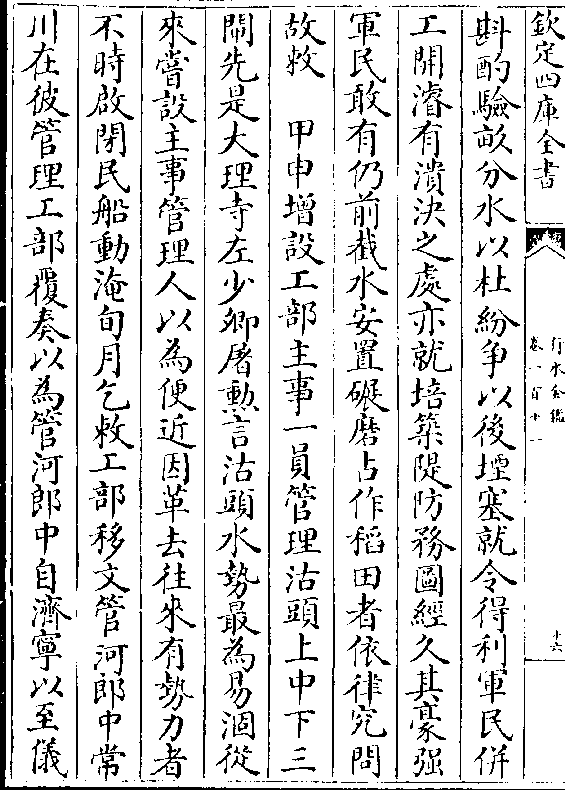 欽定四庫全書
行水金鑑
卷一百十一
十六
斟酌驗畝分水以杜紛争以後堙塞就令得利軍民併
工開濬有潰決之處亦就培築隄防務圖經久其豪强
軍民敢有仍前截水安置碾磨占作稻田者依律究問
故敕　甲申增設工部主事一員管理沽頭上中下三
閘先是大理寺左少卿屠勲言沽頭水勢最為易涸從
來嘗設主事管理人以為便近因革去往來有勢力者
不時啟閉民船動淹旬月乞敕工部移文管河郎中常
川在彼管理工部覆奏以為管河郎中自濟寧以至儀